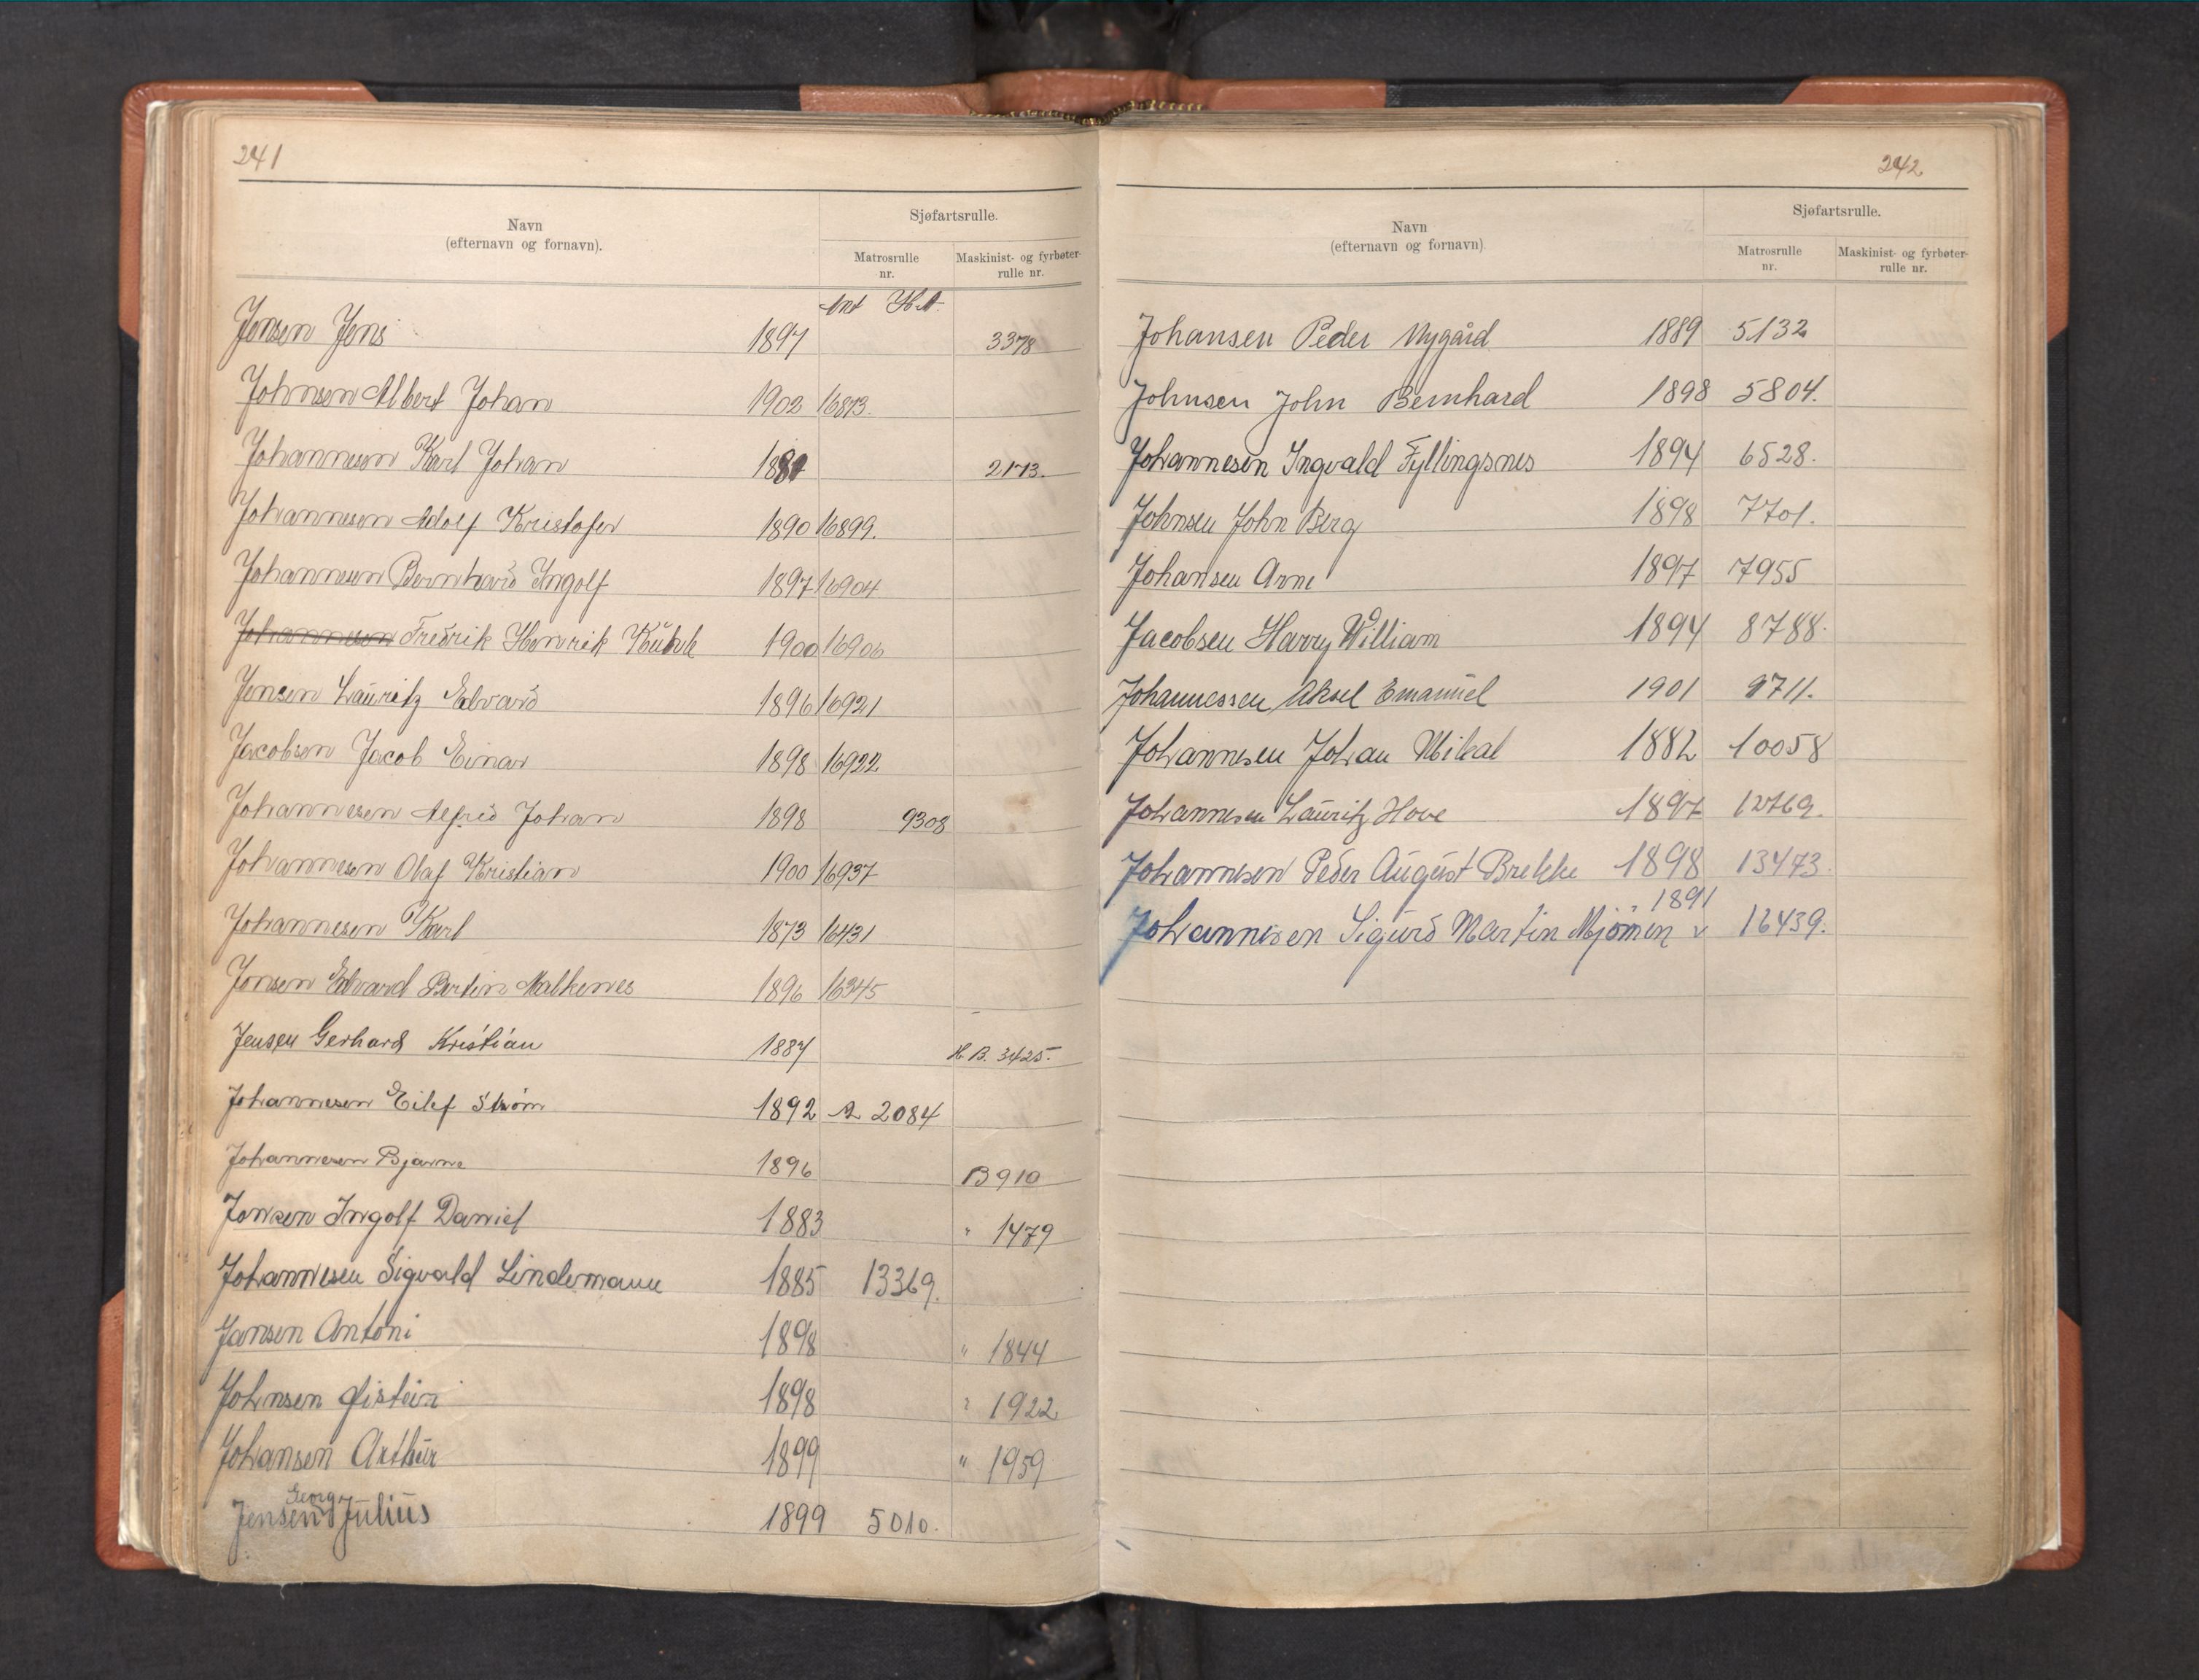 241
Navn
(efternavn og fornavn).
Sjøfartsrulle.
Matrosrulle
nr.
Maskinist- og fyrbøter-
rulle nr.
Jensen Jens 1897 3378
Johnsen Albert Johan 1902 16873.
Johannesen Karl Johan 1887 2173.
Johannesen Adolf Kristofer 1890 16899.
Johannesen Bernhard Ingolf 1897 16904
Johannesen Fredrik Henrik 1900 16906
Jensen Lauritz Edvard 1896 16921
Jacobsen Jacob Einar 1898 16922
Johannesen Alfred Johan 1898 9308
Johannesen Olaf Kristian 1900 16937
Johannesen Karl 1873 16431
Jensen Edvard Martin 1896 16345
Jensen Gerhard Kristian 1887 H.B. 3425.
Johannesen Eilef Strøm 1892 A 2084
Johannesen Bjarne 1896 B 910
Jensen Ingolf Daniel 1883 " 1479
Johannesen Sigvald Lindemann 1885 13369.
Jansen Antoni 1898 " 1844
Johnsen Øistein 1898 " 1922
Johansen Arthur 1899 " 1959
Georg
Jensen Julius 1899 5010.
242
Navn
(efternavn og fornavn).
Sjøfartsrulle.
Matrosrulle
nr.
Maskinist- og fyrbøter-
rulle nr.
Johansen Peder Nygård 1889 5132
Johnsen John Bernhard 1898 5804.
Johannesen Ingvald Fyllingsnes 1894 6528.
Johnsen John Berg 1898 7701.
Johansen Arne 1897 7955
Jacobsen Harry William 1894 8788.
Johannessen Aksel Emanuel 1901 9711.
Johannesen Johan Mikal 1882 10058
Johannesen Lauritz Hove 1897 12769.
Johannesen Peder August Brekke 1898 13473.
1891
Johannesen Sigurd Martin Mjømen v 16439.